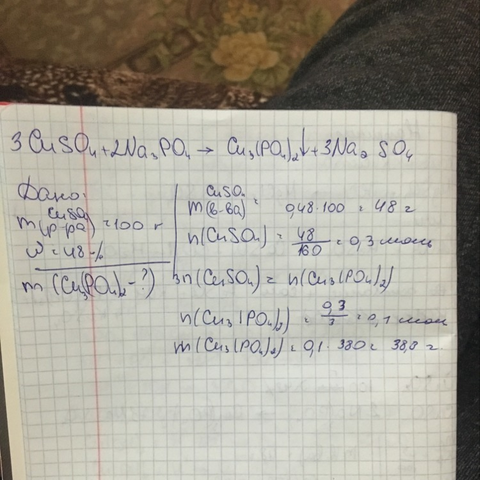 3CuSO₄+2Na₃PO₄ → Cu₃(PO₄)₂↓+3Na₂SO₄
Дано:
CuSO₄
m(р-ра) = 100 г
ω = 48 %
m (Cu₃(PO₄)₂ - ?)
CuSO₄
m(в-ва) = 0,48·100 = 48 г
n(CuSO₄) = 48/160 = 0,3 моль
3n(CuSO₄) = n(Cu₃(PO₄)₂)
n(Cu₃(PO₄)₂) = 0,3/3 = 0,1 моль
m(Cu₃(PO₄)₂) = 0,1·380 = 38,8 г.